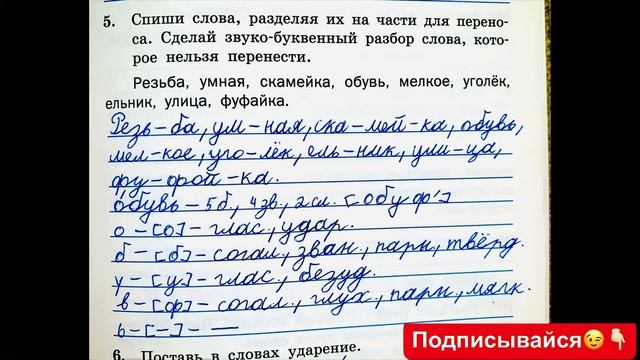 5. Спиши слова, разделяя их на части для перено-
са. Сделай звуко-буквенный разбор слова, кото-
рое нельзя перенести.
Резьба, умная, скамейка, обувь, мелкое, уголёк,
ельник, улица, фуфайка.
Резь-ба, ум-ная, ска-мей-ка, обувь,
мел-кое, уго-лёк, ель-ник, ули-ца,
фу-фай-ка.
обувь - 5 б, 4 зв., 2 сл. [обуф']
о - [о] - глас, удар.
б - [б] - соглл., звон., парн, твёрд.
у - [у] - глас., безуд.
в - [ф] - согл., глух., парн, мягк.
ь - [-] - —
6. Поставь в словах ударение.
Подписывайся😉👇